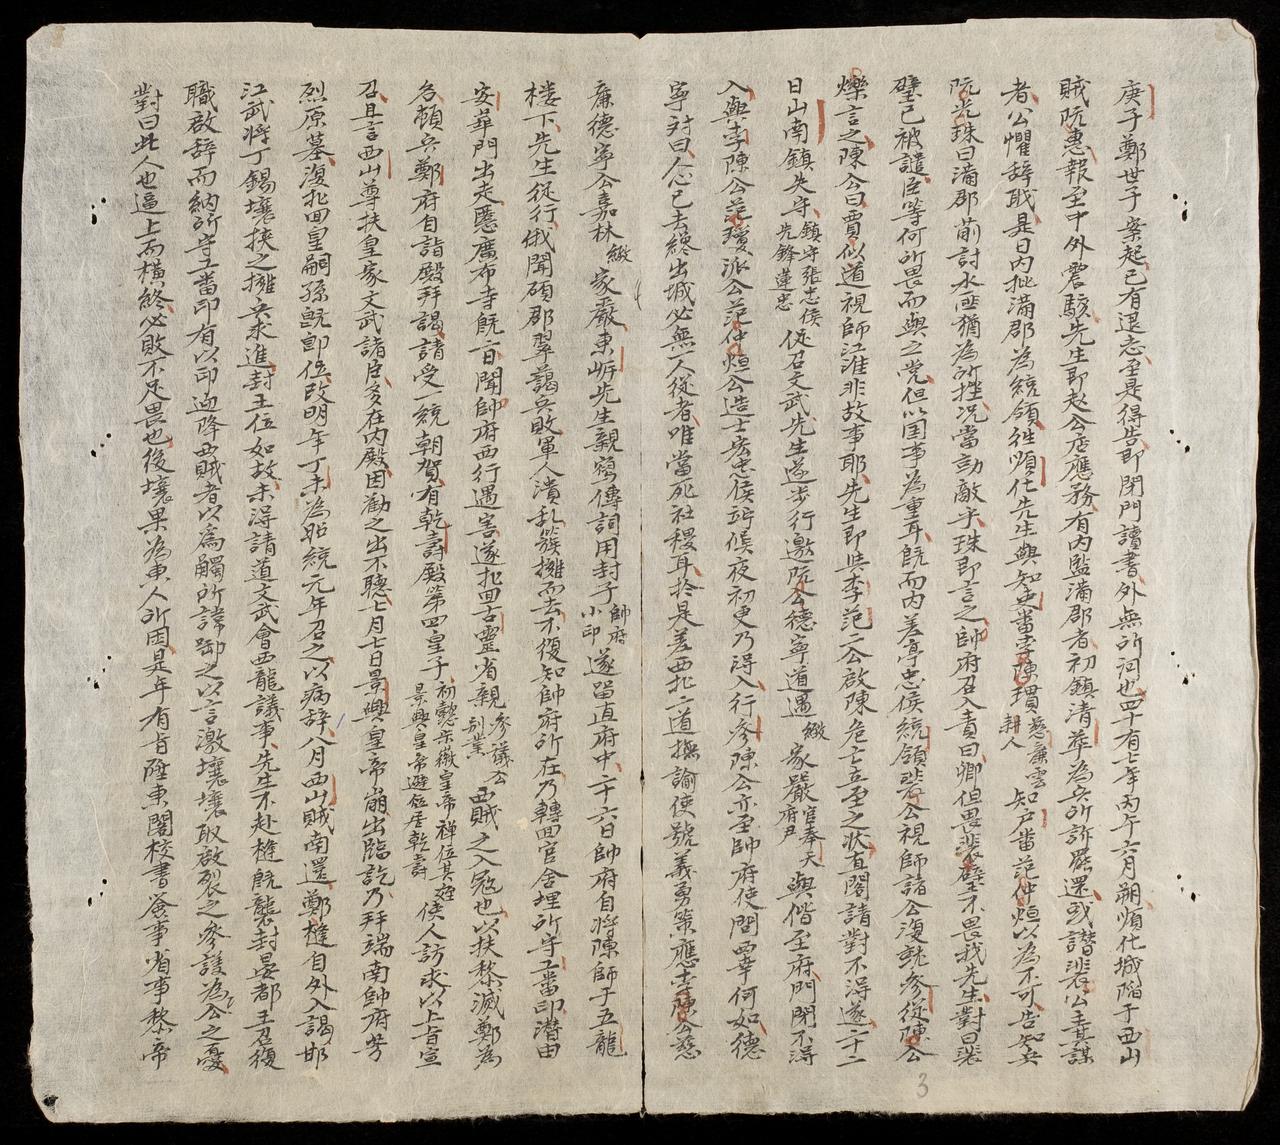 庚子鄭世子案起已有退志至是得告即閉門讀書外無所祠也四十有七年丙午六月朔順化城陷于西山
賊阮惠報至中外震駭先生即赴公店應務有内監滿郡者初鎮清華為兵所訴罷還或譖裴公主其謀
者公懼辞戝是日内批滿郡為統領徃順化先生與知工畨李陳瑻慈廉雲耕人知戸畨范仲烜以為不可告知兵
阮光珠曰滿郡前討水匪猶為所挫况當勍敵乎珠即言之帥府召入責曰卿但畏裴璧不畏我先生對曰裴
璧已被譴臣等何所畏而與之党但以国事為重耳既而内差亭忠侯統領裴公視師諸公復就参從陳公
爍言之陳公曰賈似道視師江淮非故事耶先生即与李范二公啟陳危亡立至之狀直閣請對不淂遂二十二
日山南鎮失守鎮守張忠侯先鋒蓮忠促召文武先生遂步行邀阮公德寧道遇緻家嚴官奉天府尹與偕至府門閉不淂
入與李陳公范瓊派公范仲烜公造士宏忠侯竚候夜初更乃淂入行参陳公亦至帥府使問西幸何如德
寧対曰人心已去纔出城必無一人從者唯當死社稷耳於是差西北二道撫諭使號義勇策應李陳公慈
廉德寧公嘉林緻家嚴東岍先生親寫傳詞用封子帥府小印遂畄直府中二十六日帥府自將陳師于五龍
楼下先生從行俄聞碩郡翠藹兵敗軍人潰乱簇擁而去不復知帥府所在乃轉回官舍埋所守工畨印潜由
安華門出走慝廣布寺既二日聞帥府西行遇害遂北回古靈省親参議公别業西賊之入冦也以扶黎滅鄭為
名頓兵鄭府自詣殿拜謁諸受一統朝賀有乾壽殿第四皇子初懿宗徽皇帝禅位其姪景興皇帝遊位居乾壽使人訪求以上旨宣
召且言西山尊扶皇家文武諸臣多在内殿因勸之出不聽七月七日景興皇帝崩出臨訖乃拜端南帥府于芳
烈原墓復北回皇嗣孫既即位改明年丁未為昭統元年召之以病辞八月西山賊南還鄭槰自外入謁邯
江武將丁錫壤挾之擁兵求進封王位如故未淂請道文武會西龍議事先生不赴槰既襲封晏都王召復
職啟辞而納所守工畨印有以印迎降西賊者以為觸所諱踟之以言激壤壤取啟裂之参護為公之憂
對曰此人也逼上而橫終必敗不足畏也後壤果為東人所困是年有旨陞東閣校書僉事省事黎帝